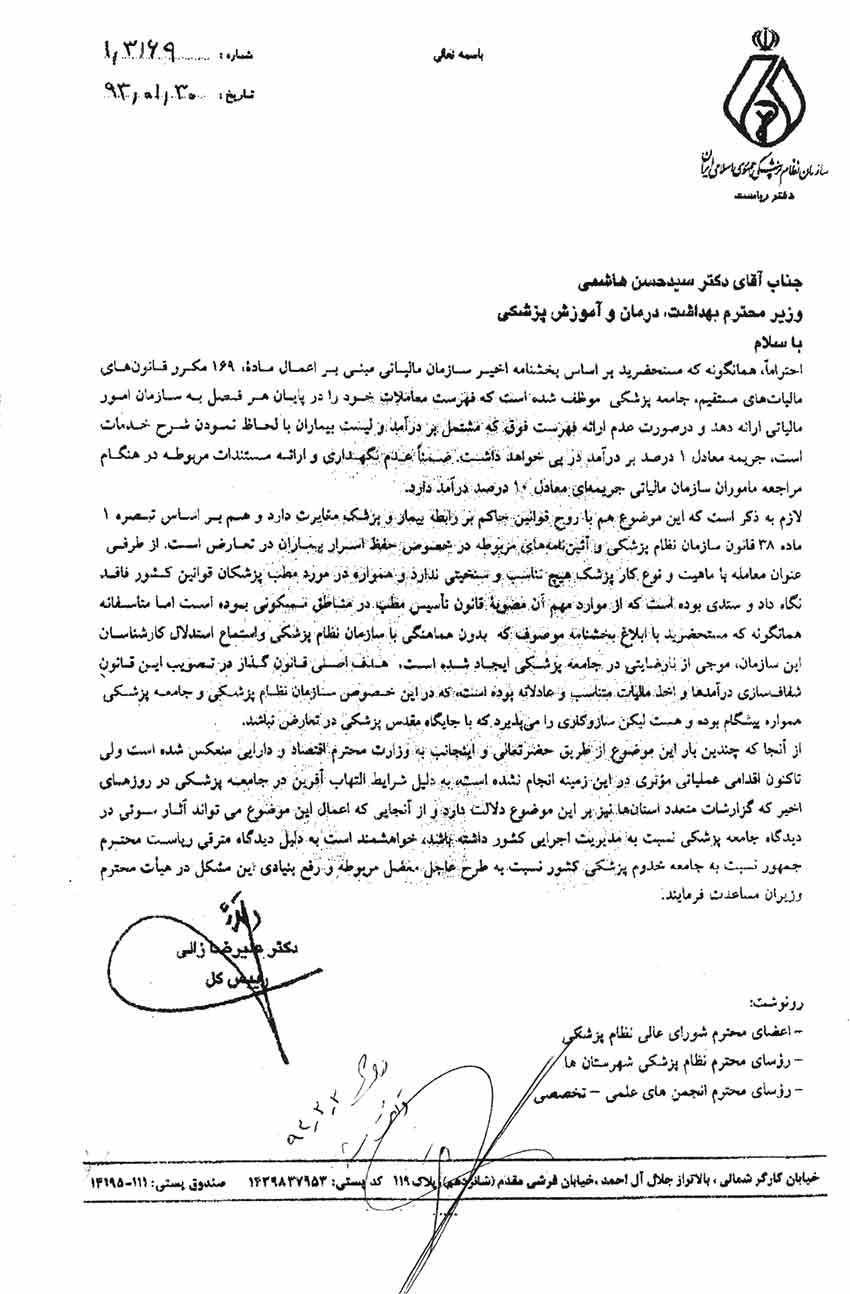 باسمه تعالی
شماره : ۱,۳۱۶۹
تاریخ : ۹۳,۰۱,۳۰
سازمان نظام پزشکی جمهوری اسلامی ایران
دفتر ریاست
جناب آقای دکتر سیدحسن هاشمی
وزیر محترم بهداشت، درمان و آموزش پزشکی
با سلام
احتراماً، همانگونه که مستحضرید بر اساس بخشنامه اخیر سازمان مالیاتی مبنی بر اعمال مادهٔ، ۱۶۹ مکرر قانون‌های
مالیات‌های مستقیم، جامعه پزشکی موظف شده است که فهرست معاملات خود را در پایان هر فصل به سازمان امور
مالیاتی ارائه دهد و درصورت عدم ارائه فهرست فوق که مشتمل بر درآمد و لیست بیماران با لحاظ نمودن شرح خدمات
است، جریمه معادل ۱ درصد بر درآمد در پی خواهد داشت. ضمناً عدم نگهداری و ارائه مستندات مربوطه در هنگام
مراجعه ماموران سازمان مالیاتی جریمه‌ای معادل ۱۰ درصد درآمد دارد.
لازم به ذکر است که این موضوع هم با روح قوانین حاکم بر رابطه بیمار و پزشک مغایرت دارد و هم بر اساس تبصره ۱
ماده ۳۸ قانون سازمان نظام پزشکی و آئین‌نامه‌های مربوطه در خصوص حفظ اسرار بیماران در تعارض است. از طرفی
عنوان معامله با ماهیت و نوع کار پزشک هیچ تناسب و سنخیتی ندارد و همواره در مورد مطب پزشکان قوانین کشور فاقد
نگاه داد و ستدی بوده است که از موارد مهم آن مصوبهٔ قانون تأسیس مطب در مناطق مسکونی بوده است اما متاسفانه
همانگونه که مستحضرید با ابلاغ بخشنامه موصوف که بدون هماهنگی با سازمان نظام پزشکی واستماع استدلال کارشناسان
این سازمان، موجی از نارضایتی در جامعه پزشکی ایجاد شده است. هدف اصلی قانون گذار در تصویب این قانون
شفاف‌سازی درآمدها و اخذ مالیات متناسب و عادلانه بوده است، که در این خصوص سازمان نظام پزشکی و جامعه پزشکی
همواره پیشگام بوده و هست لیکن سازوکاری را می‌پذیرد که با جایگاه مقدس پزشکی در تعارض نباشد.
از آنجا که چندین بار این موضوع از طریق حضرتعالی و اینجانب به وزارت محترم اقتصاد و دارایی منعکس شده است ولی
تاکنون اقدامی عملیاتی مؤثری در این زمینه انجام نشده است، به دلیل شرایط التهاب آفرین در جامعه پزشکی در روزهای
اخیر که گزارشات متعدد استان‌ها نیز بر این موضوع دلالت دارد و از آنجایی که اعمال این موضوع می تواند آثار سوئی در
دیدگاه جامعه پزشکی نسبت به مدیریت اجرایی کشور داشته باشد، خواهشمند است به دلیل دیدگاه مترقی ریاست محترم
جمهور نسبت به جامعه خدوم پزشکی کشور نسبت به طرح عاجل معضل مربوطه و رفع بنیادی این مشکل در هیأت محترم
وزیران مساعدت فرمایند.
دکتر علیرضا زالی
رییس کل
رونوشت:
- اعضای محترم شورای عالی نظام پزشکی
- رؤسای محترم نظام پزشکی شهرستان ها
- رؤسای محترم انجمن های علمی – تخصصی
۹۳,۲,۲
خیابان کارگر شمالی، بالاتراز جلال آل احمد ،خیابان فرشی مقدم (شانزدهم) پلاک ۱۱۹ کد پستی: ۱۴۳۹۸۳۷۹۵۳ صندوق پستی: ۱۱۱-۱۴۱۹۵